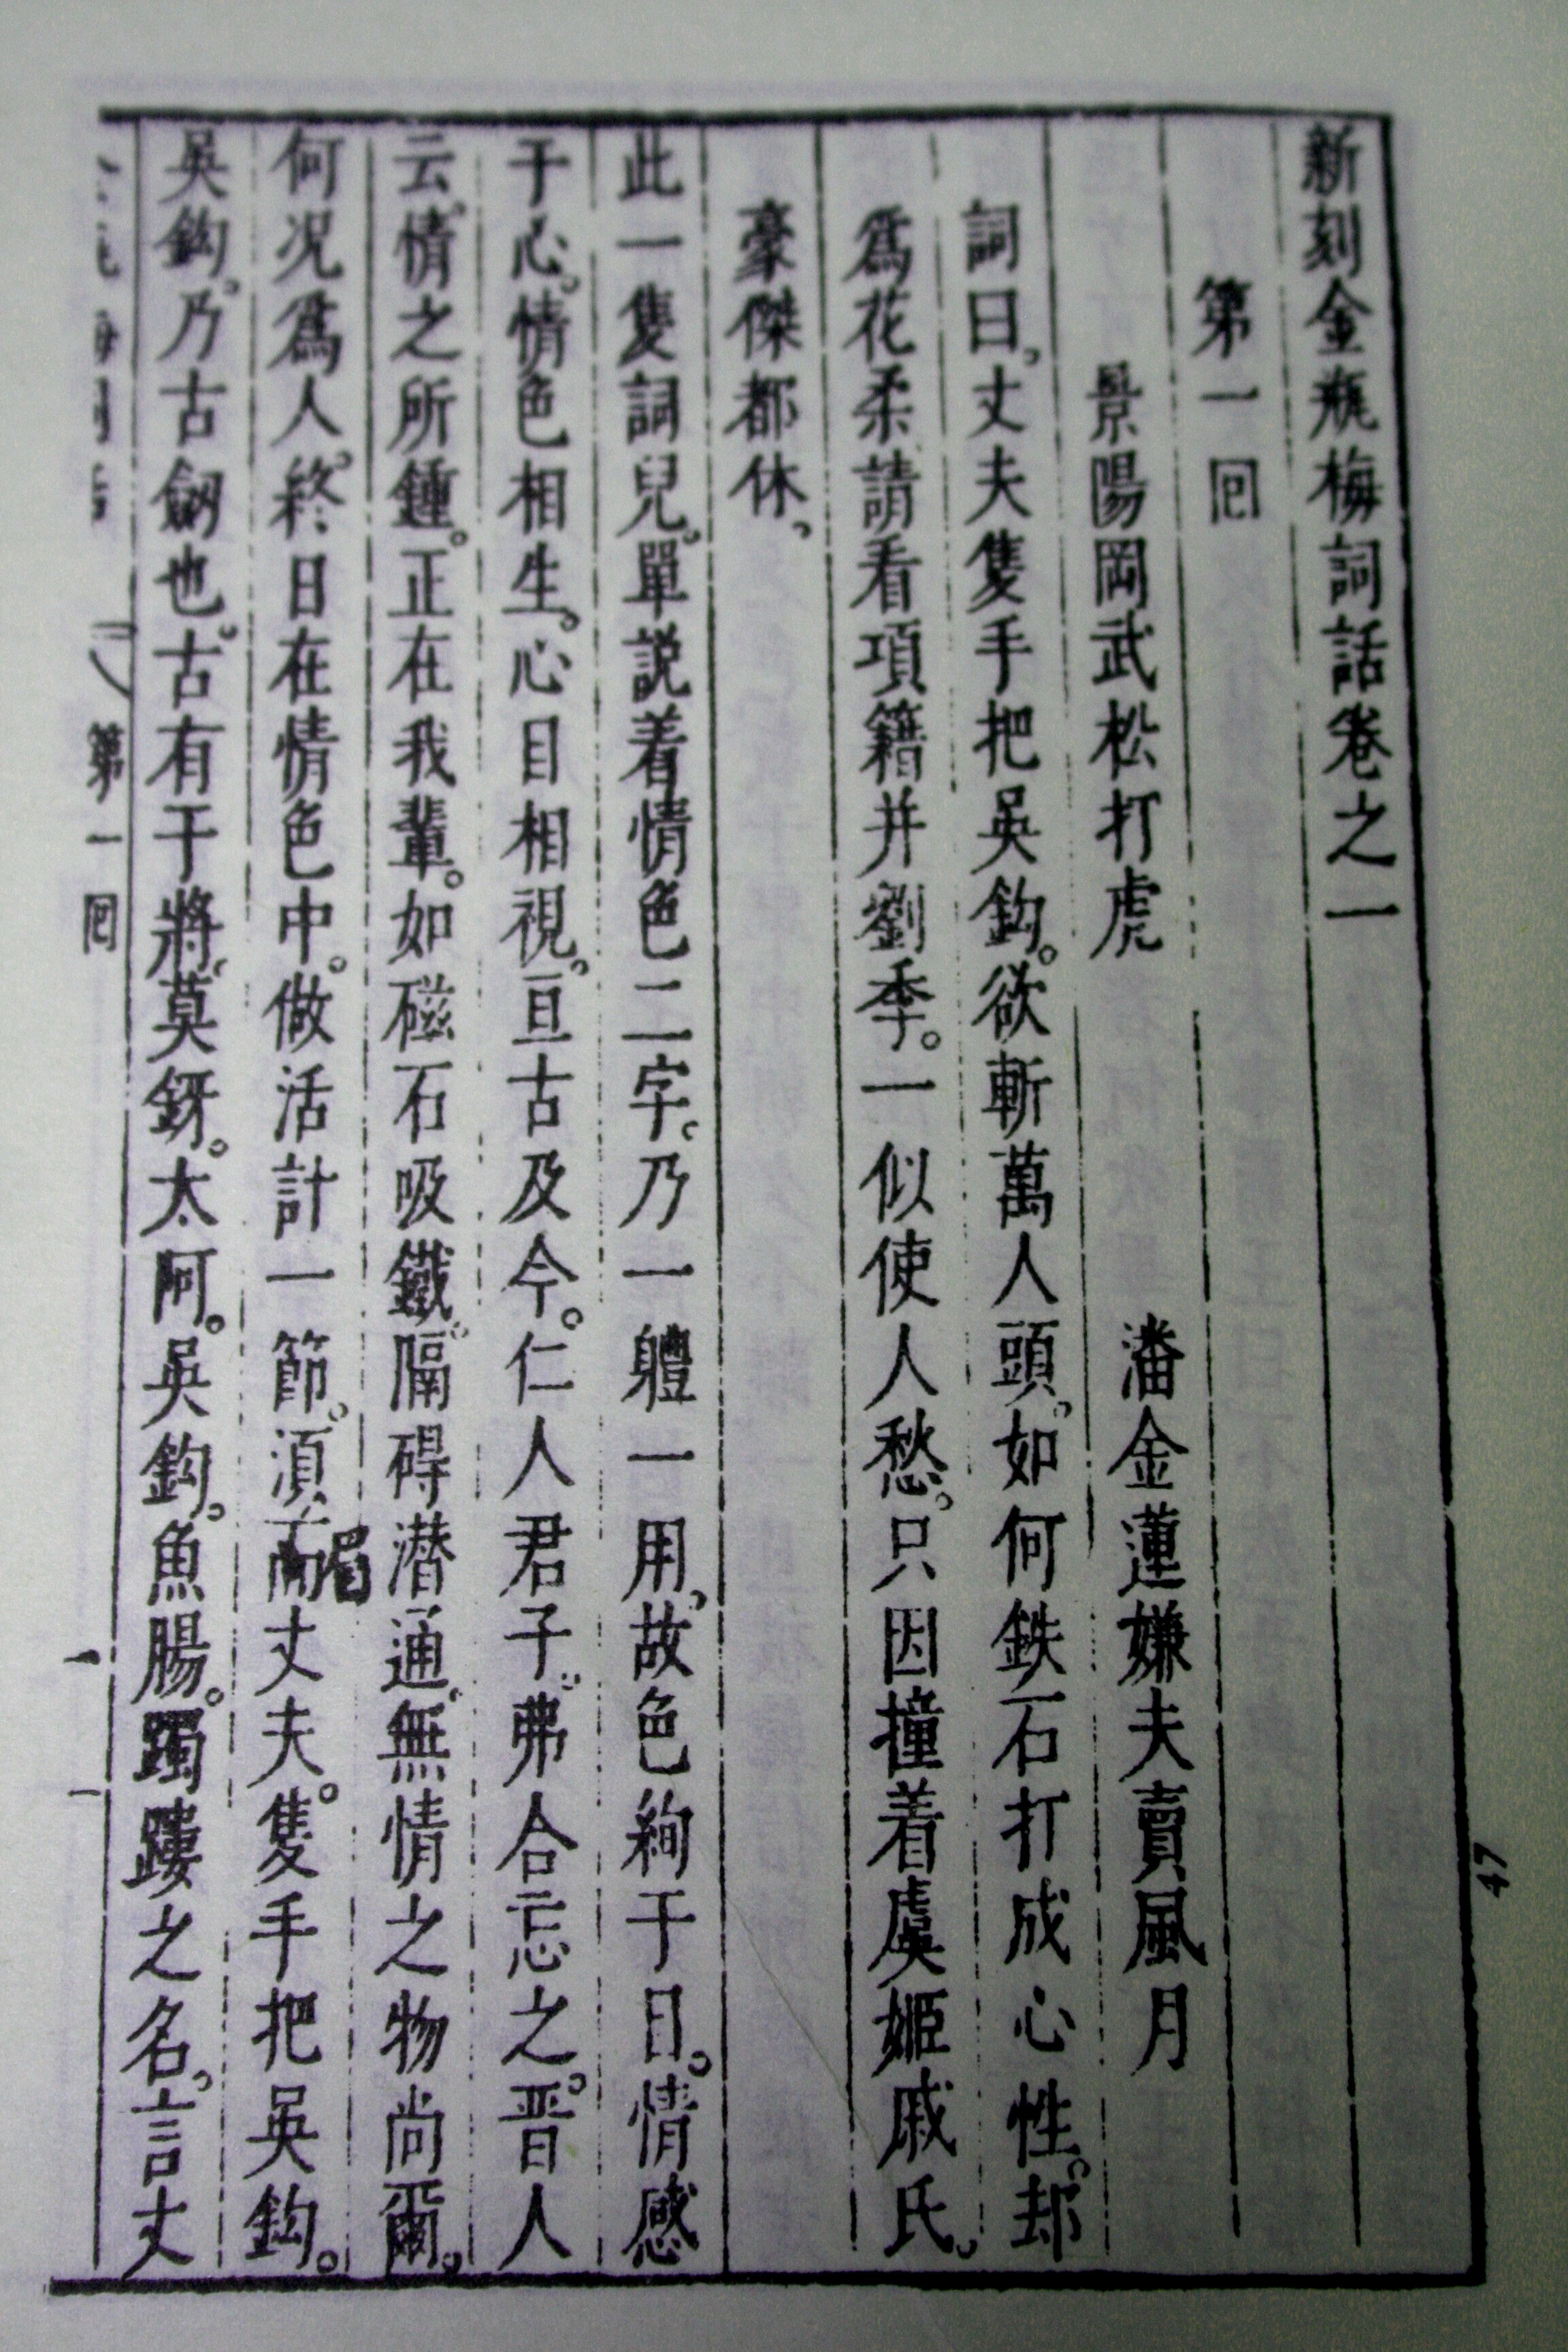 新刻金瓶梅詞話卷之一
第一回
景陽岡武松打虎 潘金蓮嫌夫賣風月
詞曰、丈夫隻手把吳鈎。欲斬萬人頭。如何鉄石打成心性。却
爲花柔請看項籍并劉季。一似使人愁。只因撞着虞姬戚氏。
豪傑都休、
此一隻詞兒。單説着情色二字。乃一體一用、故色絢于目。情感
于心。情色相生。心目相視。亘古及今。仁人君子。弗合忘之。晋人
云。情之所鍾。正在我輩。如磁石吸鐵。隔碍潜通。無情之物尚爾。
何况爲人。終日在情色中。做活計一節。須而丈夫。隻手把吳鈎。
吳鈎。乃古劒也。古有干將。莫釾。太阿。吳鈎。魚腸。躅䠱之名。言丈
第一回
一
47